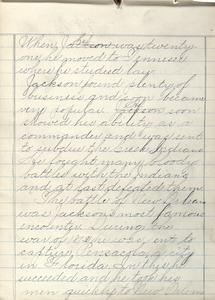 When Jackson was twenty
one he moved to Tennessee
where he studied law.
Jackson found plenty of
business and soon became
very popular. Jackson soon
showed his ability as a
commander and was sent
to subdue the Creek Indians.
He fought many bloody
battles with the Indians
and at last defeated them.
The battle of New Orleans
was Jackson's most famous
During the
war of 1812 he was sent to
capture Pensacola, a city
in Florida. In this he
succeeded and he took his
men quickly to New Orleans